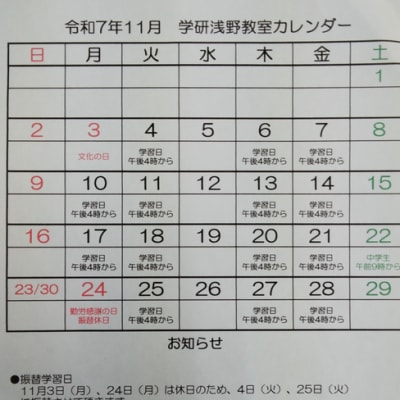 令和7年11月　学研浅野教室カレンダー
日 月 火 水 木 金 土
1
2 3 4 5 6 7 8
文化の日 学習日 学習日 学習日
午後4時から 午後4時から 午後4時から
9 10 11 12 13 14 15
学習日 学習日 学習日 学習日
午後4時から 午後4時から 午後4時から 午後4時から
16 17 18 19 20 21 22
学習日 学習日 学習日 学習日 中学生
午後4時から 午後4時から 午後4時から 午後4時から 午前9時から
23/30 24 25 26 27 28 29
勤労感謝の日 学習日 学習日 学習日
振替休日 午後4時から 午後4時から 午後4時から
お知らせ
●振替学習日
11月3日（月）、24日（月）は休日のため、4日（火）、25日（火）